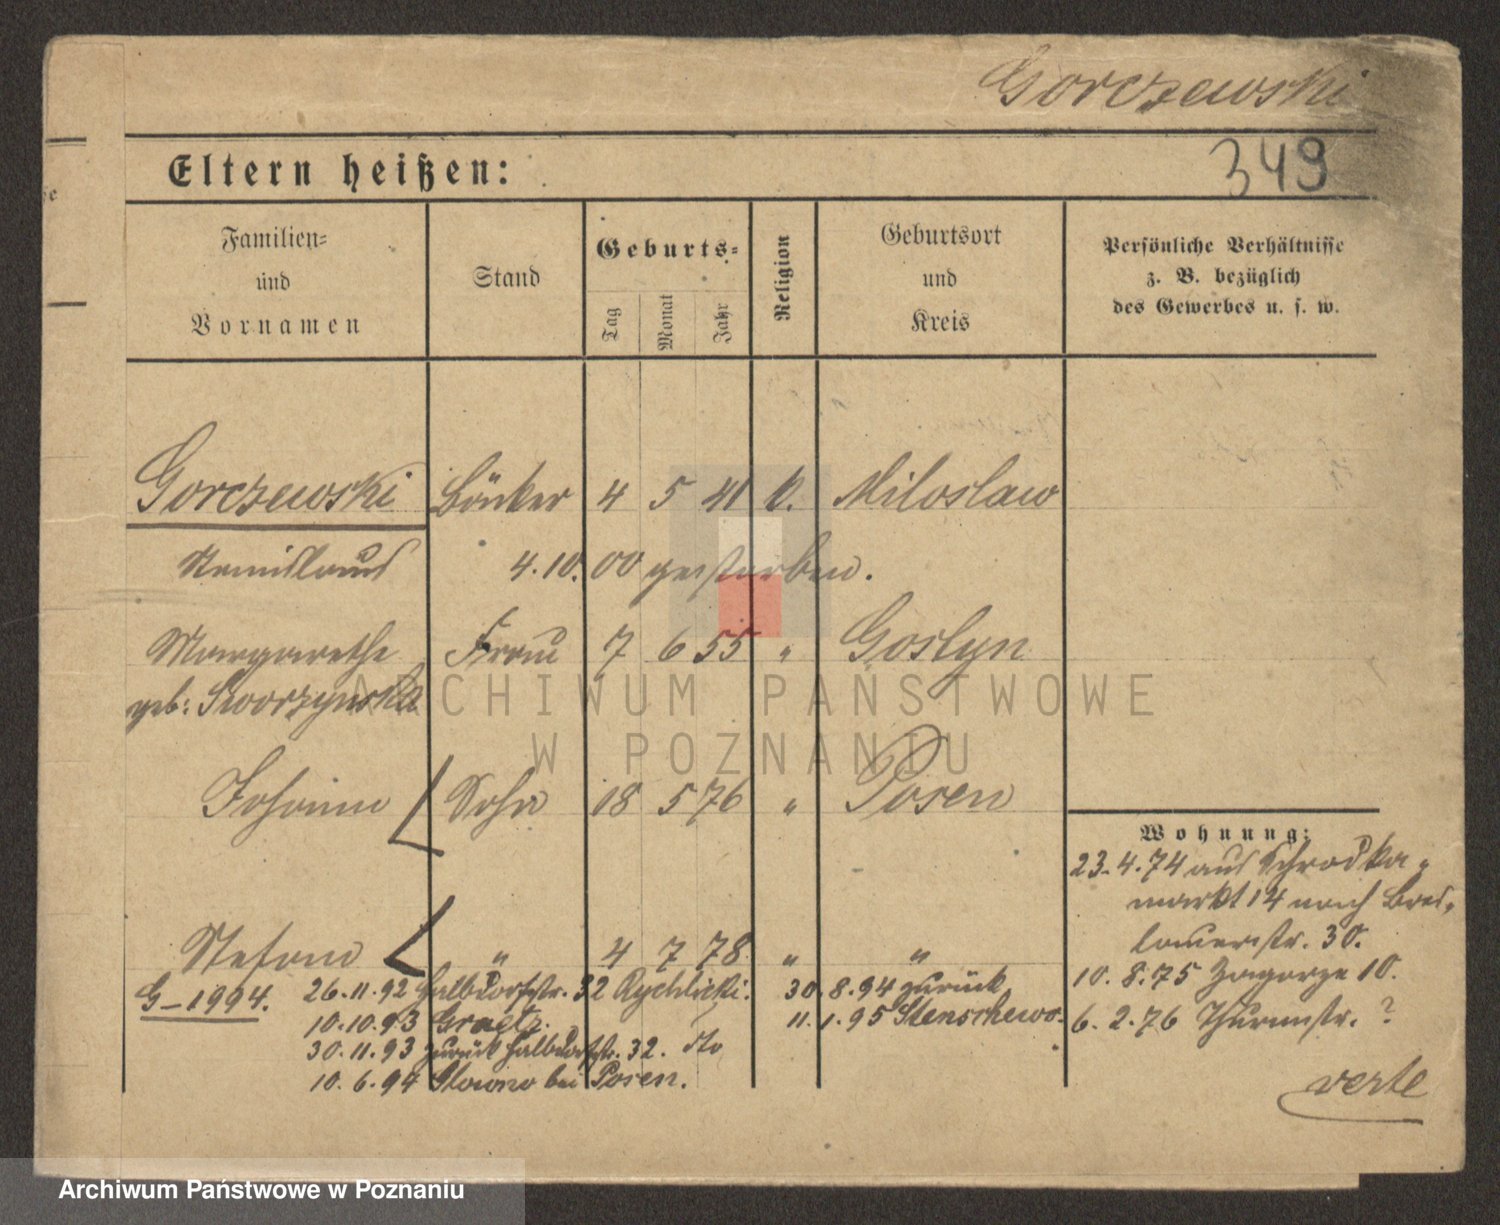 Gorczewski
349
Eltern heißen:
Familien- und Vornamen
Stand
Geburts-
Tag
Monat
Jahr
Religion
Geburtsort und Kreis
Persönliche Verhältnisse
z. B. bezüglich
des Gewerbes u. s. w.
Gorczewski Böttcher 4 5 41 k. Miloslaw
Stanislaus 4.10.00 gestorben.
Margarethe Frau 7 6 55 " Goslyn
geb: Skorzynska
Johann Sohn 18 5 76 " Posen
Wohnung:
23.4.74 aus Schrodka-
markt 14 nach Bres-
lauerstr. 30.
Stefan " 4 7 78 " "
10.8.75 Zagorze 10.
6.2.76 Thurmstr. ?
G-1994. 26.11.92 Halbdorfstr. 32 Rychlicki. 30.8.94 zurück
10.10.93 Graetz. 11.1.95 Stenschewo.
30.11.93 zurück Halbdorfstr. 32. dto
10.6.94 Glowno bei Posen.
verte
ARCHIWUM PAŃSTWOWE
W POZNANIU
Archiwum Państwowe w Poznaniu